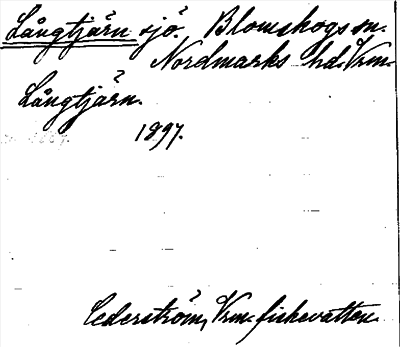 Långtjärn sjö. Blomskogs sn.
Nordmarks hd. Vrm.
Långtjärn.
1897.
Cederström, Vrm. fiskevatten.